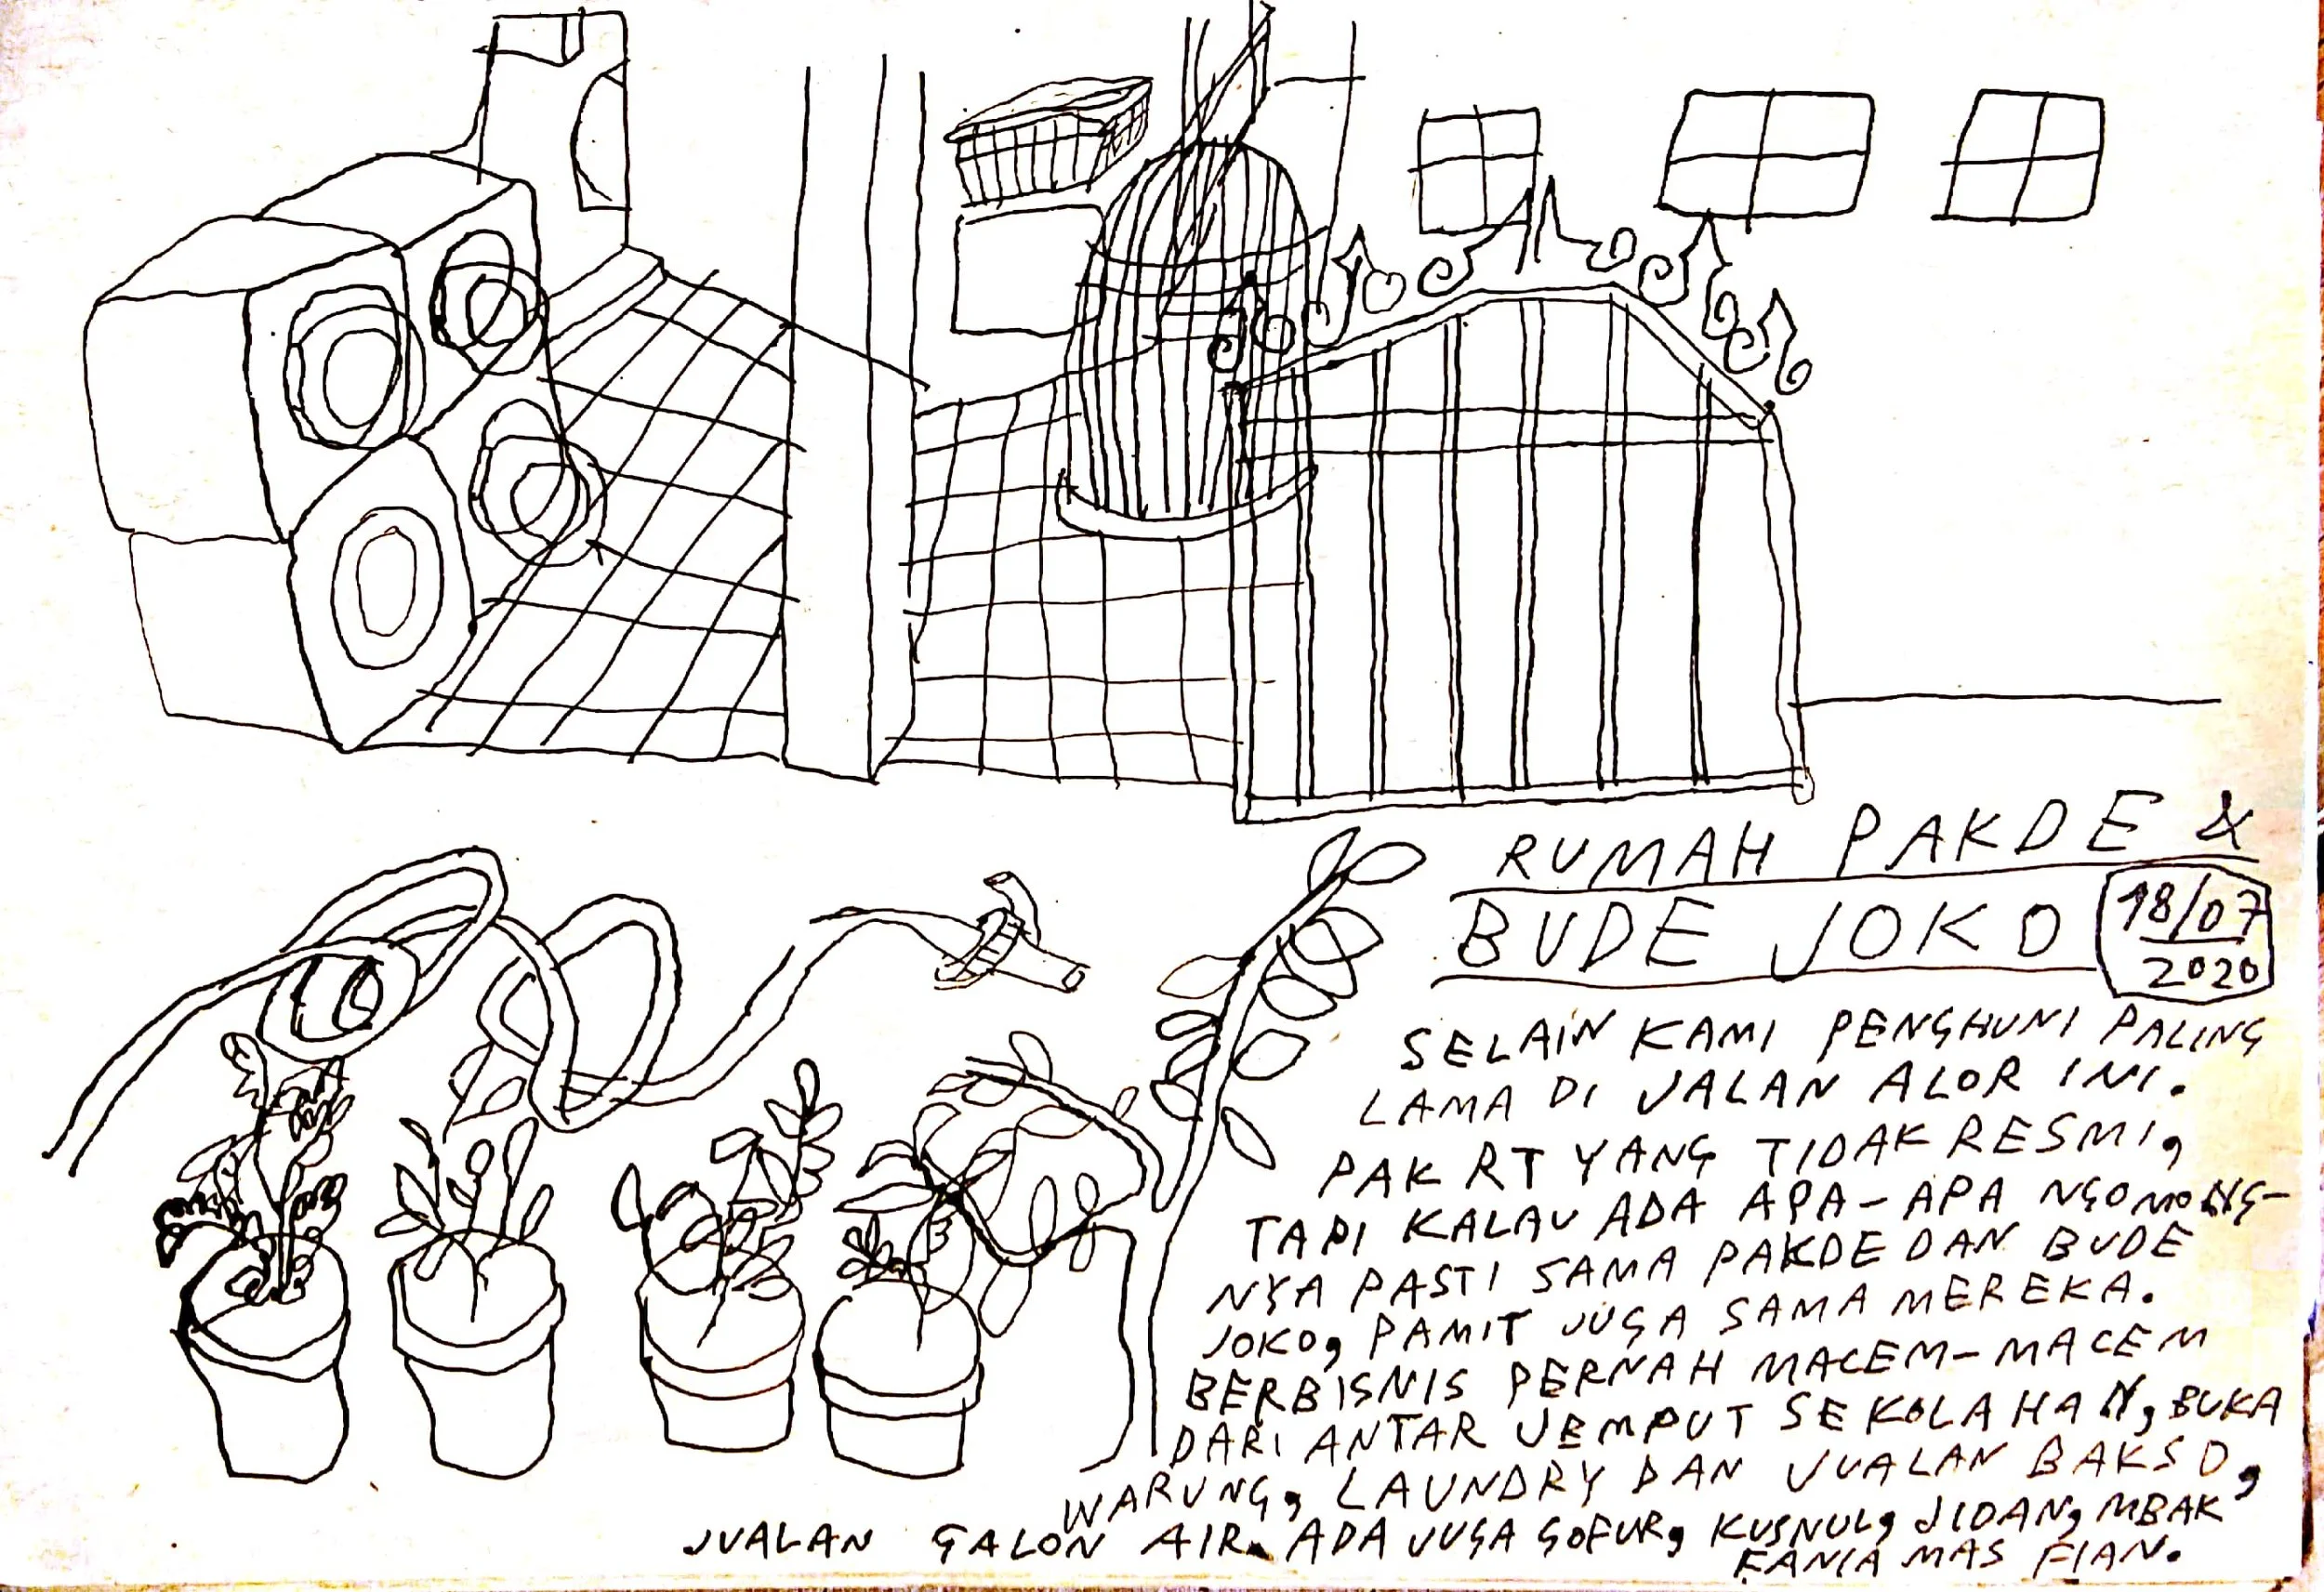 RUMAH PAKDE &
BUDE JOKO
18/07
2020
SELAIN KAMI PENGHUNI PALING
LAMA DI JALAN ALOR INI.
PAK RT YANG TIDAK RESMI,
TAPI KALAU ADA APA-APA NGOMONG-
NYA PASTI SAMA PAKDE DAN BUDE
JOKO, PAMIT JUGA SAMA MEREKA.
BERBISNIS PERNAH MACEM-MACEM
DARI ANTAR JEMPUT SEKOLAHAN, BUKA
WARUNG, LAUNDRY DAN JUALAN BAKSO,
JUALAN GALON AIR. ADA JUGA GOFUR, KUSNUL, JIDAN, MBAK
FANIA MAS FIAN.